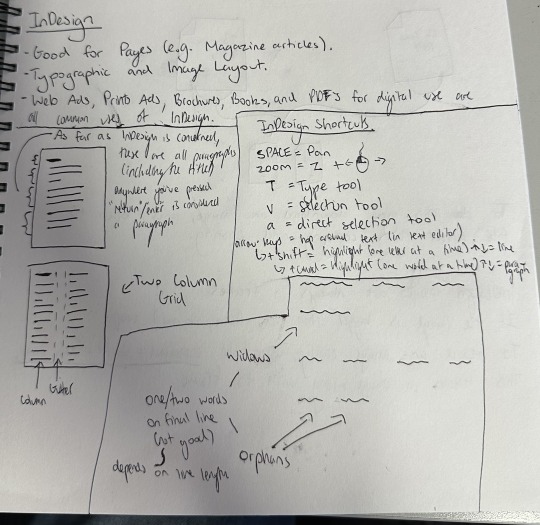 InDesign
- Good for Pages (e.g. Magazine articles).
- Typographic and Image Layout.
- Web Ads, Print Ads, Brochures, Books, and PDFs for digital use are
all common uses of InDesign.
As far as InDesign is concerned,
these are all paragraphs
(including the title)
Anywhere you've pressed
"return/enter" is considered
a paragraph
Two Column
Grid
Column
Gutter
InDesign Shortcuts
SPACE = Pan
ZOOM = Z +
T = Type tool
V = selection tool
a = direct selection tool
arrow keys = hop around text (in text editor)
+ shift = highlight (one letter at a time) ↑↓ = line
+ cmd = highlight (one word at a time) ↑↓ = paragraph
Widows
one/two words
on final line
(not good)
depends on line length
Orphans